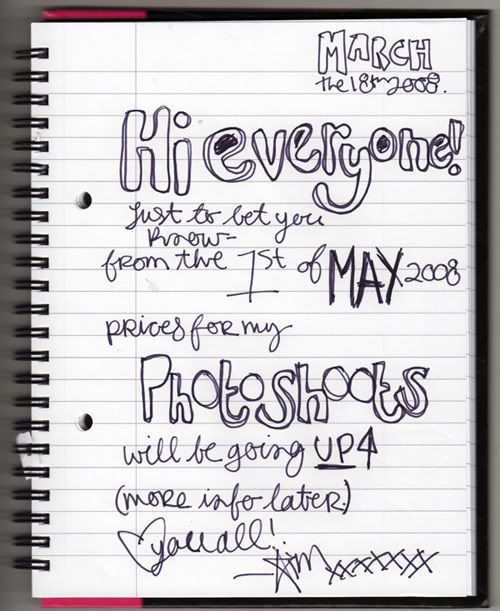 MARCH
the 18th 2008.
Hi everyone!
Just to let you
know-
from the 1st of MAY 2008
prices for my
Photoshoots
will be going UP
(more info later)
you all!
xxxxxxx